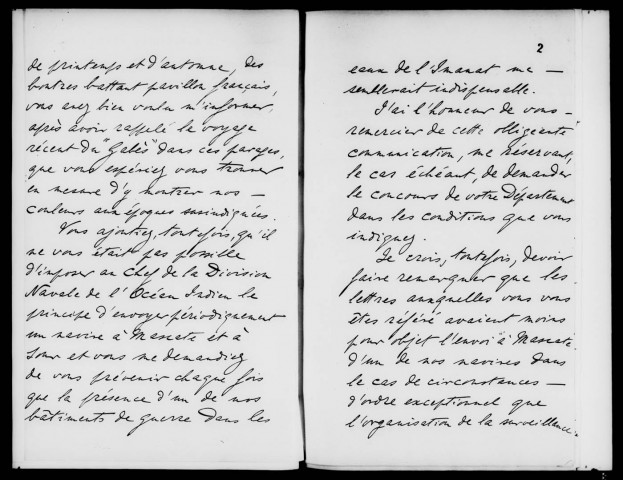 de printemps et d'automne, des
boutres battant pavillon français,
vous avez bien voulu m'informer,
après avoir rappelé le voyage
récent du "Galès" dans ces parages,
que vous espériez vous trouver
en mesure d'y montrer nos —
couleurs aux époques susindiquées.
Vous ajoutiez, toutefois, qu'il
ne vous était pas possible
d'imposer au Chef de la Division
Navale de l'Océan Indien le
principe d'envoyer périodiquement
un navire à Mascate et à
Sour et vous me demandiez
de vous prévenir chaque fois
que la présence d'un de nos
bâtiments de guerre dans les
2
eaux de l'Imanat me —
semblerait indispensable.
J'ai l'honneur de vous —
remercier de cette obligeante
communication, me réservant,
le cas échéant, de demander
le concours de votre Département
dans les conditions que vous
indiquez.
Je crois, toutefois, devoir
faire remarquer que les
lettres auxquelles vous vous
êtes référé avaient moins
pour objet l'envoi à Mascate
d'un de nos navires dans
le cas de circonstances —
d'ordre exceptionnel que
l'organisation de la surveillance